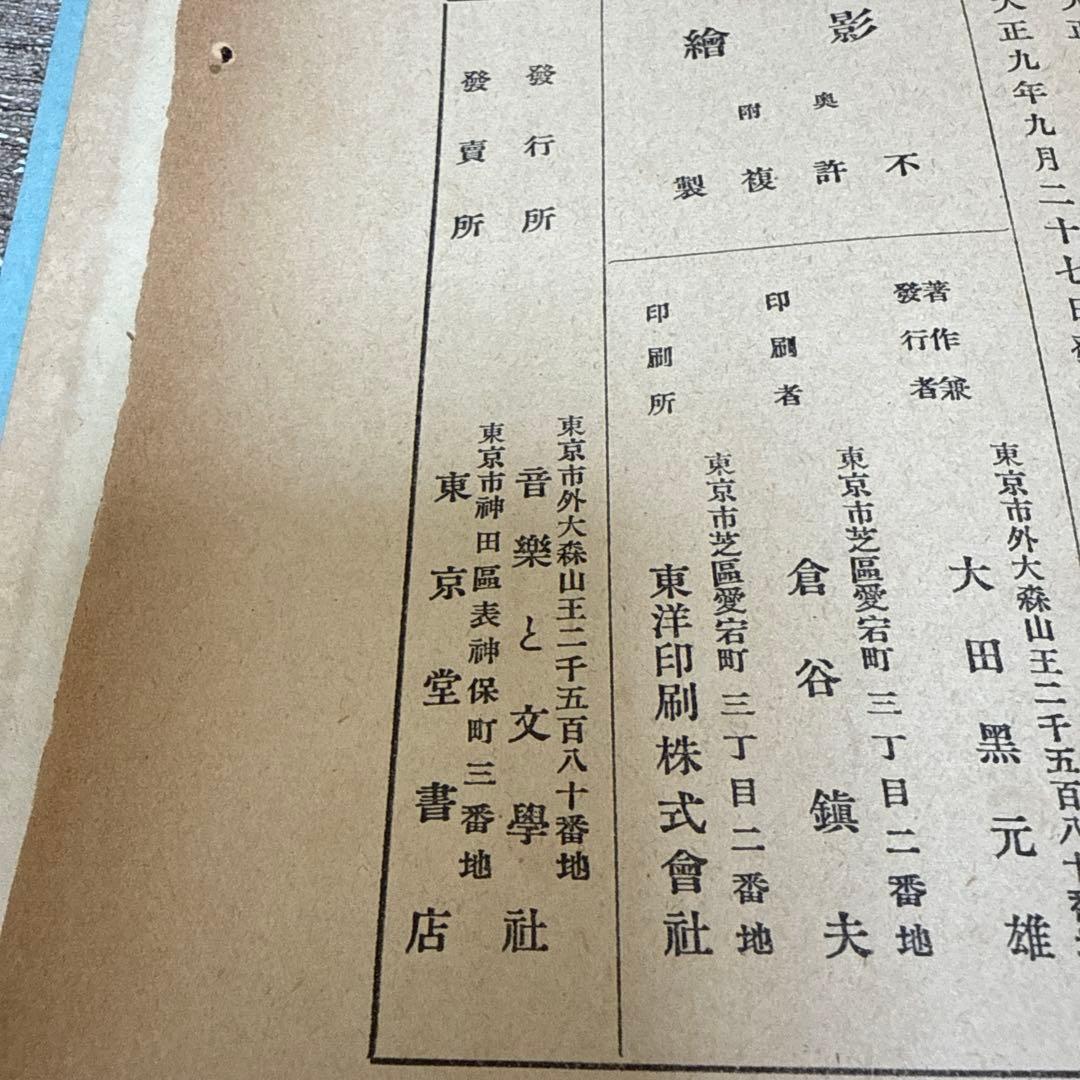 大正九年九月二十七日
影繪
奥附
不許複製
著作兼
發行者
東京市外大森山王二千五百八十番地
大田黑元雄
印刷者
東京市芝區愛宕町三丁目二番地
倉谷鎭夫
印刷所
東京市芝區愛宕町三丁目二番地
東洋印刷株式會社
發行所
東京市外大森山王二千五百八十番地
音樂と文學社
發賣所
東京市神田區表神保町三番地
東京堂書店